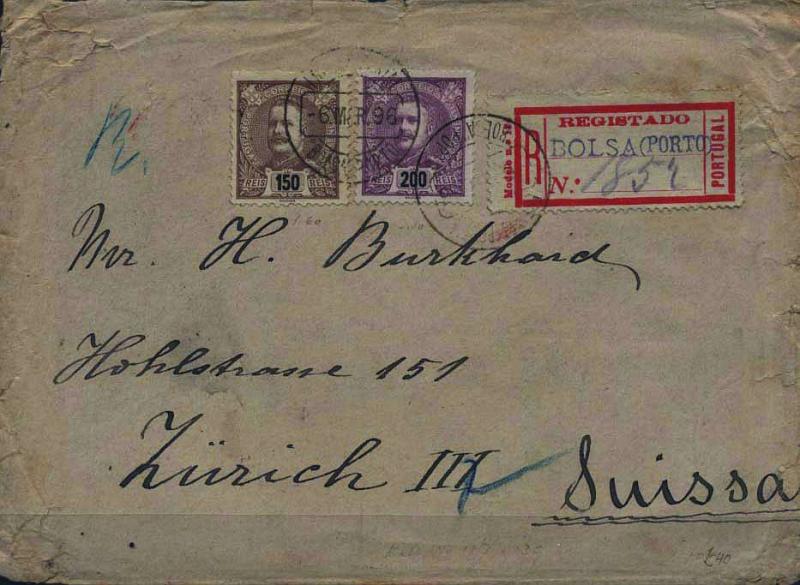 CORREIOS
REIS 150 REIS
CORREIOS
REIS 200 REIS
-6 MAR. 96
Modelo n.º
REGISTADO
R
BOLSA (PORTO)
N.º 1852
PORTUGAL
R.
Mr. H. Burkhard
Hohlstrasse 151
Zürich III
Suissa